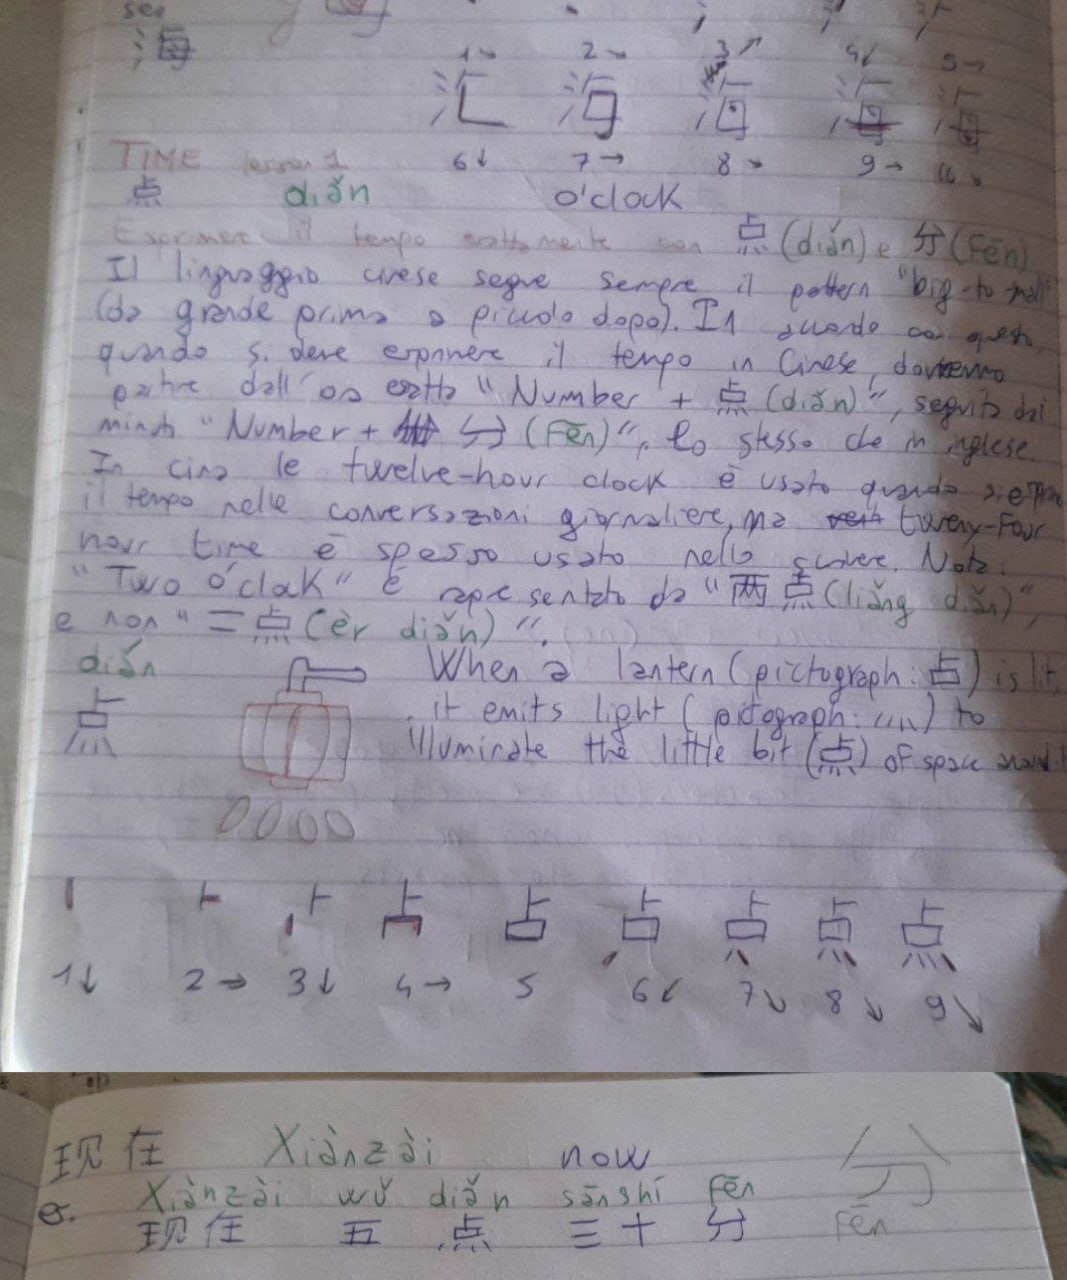 sea
海
1 2 3 4 5
6 7 8 9
TIME lesson 1
点 diǎn o'clock
Esprimere il tempo esattamente con 点 (diǎn) e 分 (Fēn)
Il linguaggio cinese segue sempre il pattern "big-to-
(da grande prima a piccolo dopo). In con questo,
quando si deve esprimere il tempo in Cinese, dovremo
partire dall'ora esatta "Number + 点 (diǎn)", seguito dai
minuti "Number + 分 (Fēn)", lo stesso che in inglese.
In cina le twelve-hour clock è usato quando si esprime
il tempo nelle conversazioni giornaliere, ma tweny-four
hour time è spesso usato nello scrivere. Nota:
"Two o'clok" è rapresentato da "两点 (liǎng diǎn)",
e non "二点 (èr diǎn)".
diǎn When a lantern (pictograph: 占) is lit,
点 it emits light (pictograph: 灬) to
illuminate the little bit (点) of space around it
1↓ 2→ 3↓ 4→ 5 6↙ 7↘ 8↘ 9↘
现在 Xiànzài now 分
Xiànzài wǔ diǎn sānshí Fēn
es. 现在 五 点 三十 分 Fēn